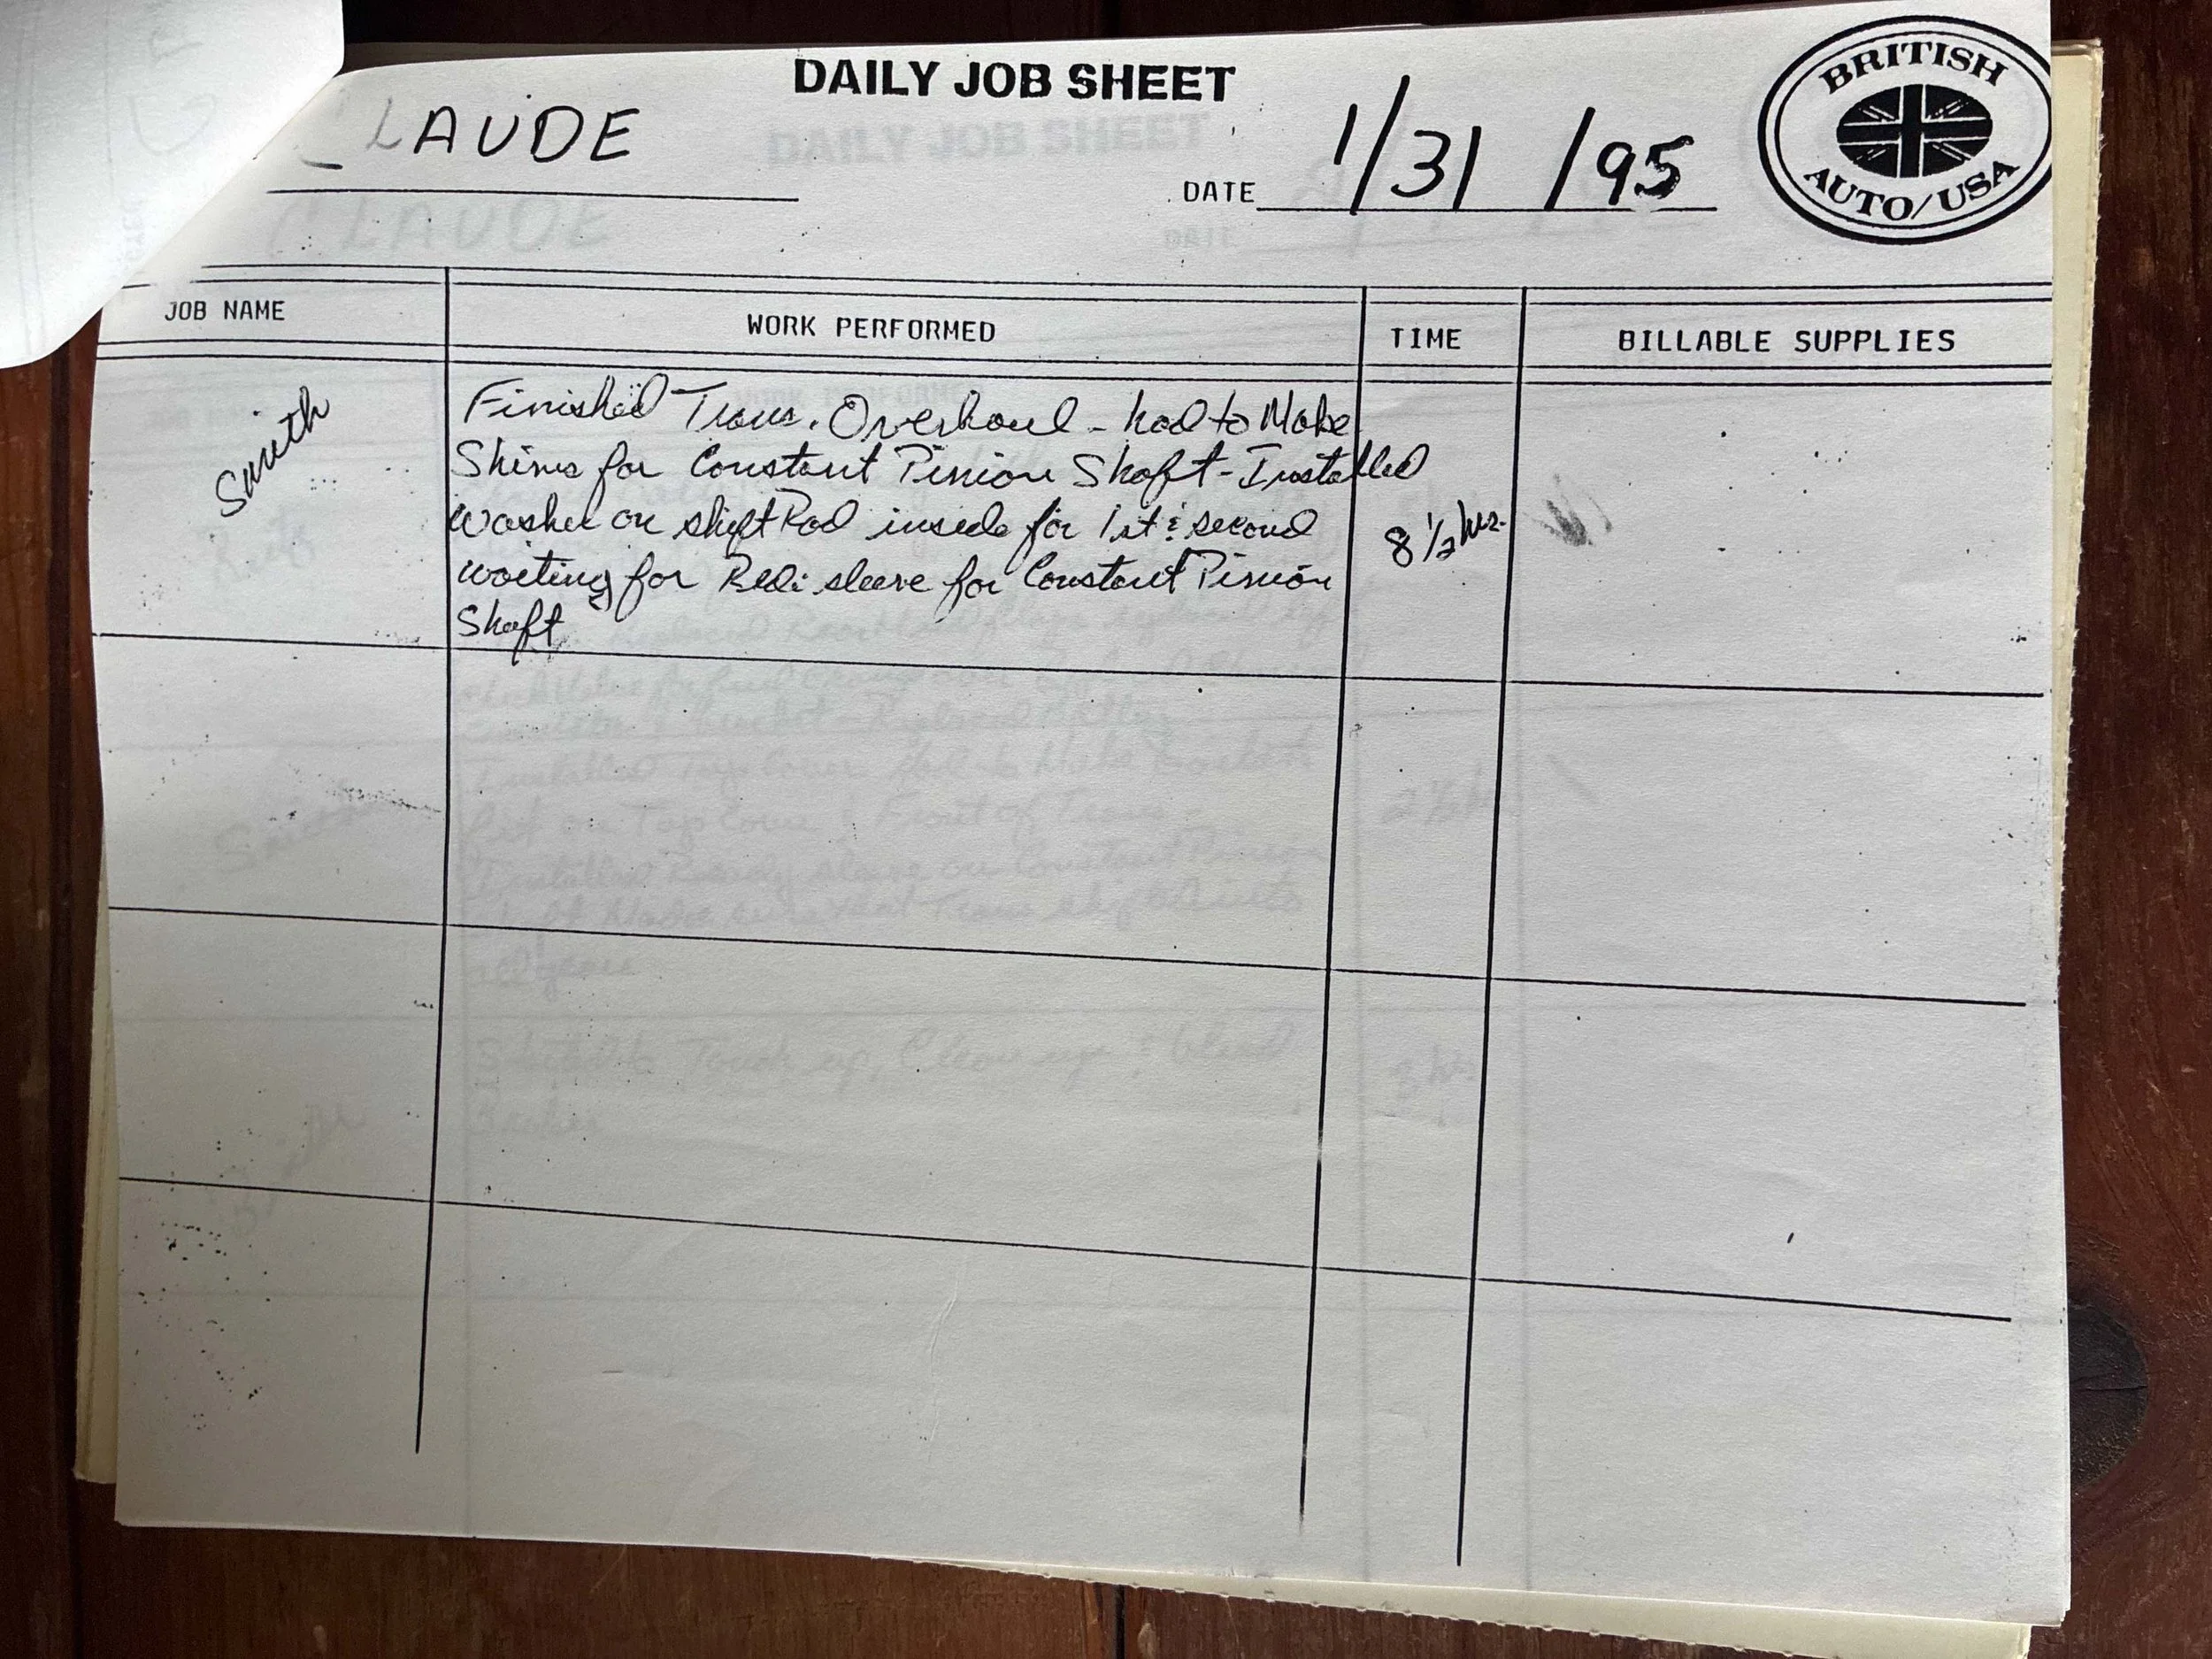 DAILY JOB SHEET
CLAUDE
DATE 1/31/95
BRITISH
AUTO/USA
JOB NAME
WORK PERFORMED
TIME
BILLABLE SUPPLIES
Smith
Finished Trans. Overhaul - had to Make
Shims for Constant Pinion Shaft - Installed
Washer on shift Rod inside for 1st & second
waiting for Redi sleeve for Constant Pinion
Shaft
8 1/2 hrs.